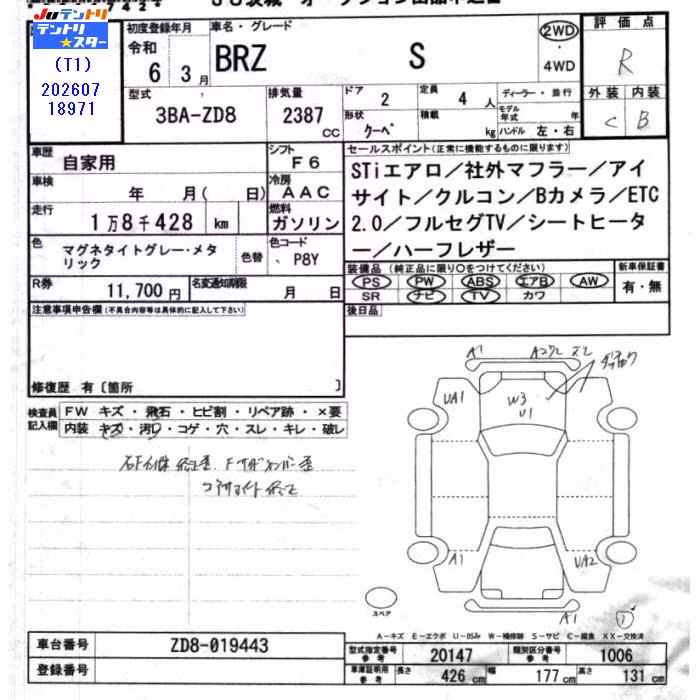 Juテントリ
テントリ★スター
(T1)
202607
18971
初度登録年月
令和
6 3 月
車名・グレード
BRZ S
2WD
・
4WD
評価点
R
外装 内装
C B
型式
3BA-ZD8
排気量
2387 CC
ドア 2
定員 4 人
形状 クーペ
積載 kg
ディーラー・並行
モデル年式 年
ハンドル 左・右
車歴 自家用
シフト F6
車検 年 月( 日)
冷房 AAC
走行 1万8千428 km
燃料 ガソリン
色 マグネタイトグレー・メタリック
色替
色コード P8Y
R券 11,700 円
名変通知期限 月 日
セールスポイント(正常に機能するものに限ります)
STiエアロ/社外マフラー/アイ
サイト/クルコン/Bカメラ/ETC
2.0/フルセグTV/シートヒータ
ー/ハーフレザー
装備品(純正品に限り○をつけてください)
PS PW ABS エアB AW
SR ナビ TV カワ
新車保証書
有・無
後日品
注意事項申告欄(不具合内容等は具体的に記入して下さい)
修復歴 有〔箇所 〕
検査員
記入欄
FW キズ・飛石・ヒビ割・リペア跡・×要
内装 キズ・汚れ・コゲ・穴・スレ・キレ・破レ
A1
UA1
W3
U1
A1
UA2
A1
スペア
A-キズ E-エクボ U-凹み W-補修跡 S-サビ C-腐食 XX-交換済
車台番号 ZD8-019443
登録番号
型式指定番号 参考 20147
類別区分番号 参考 1006
車庫証明用 参考 長さ 426 cm 幅 177 cm 高さ 131 cm